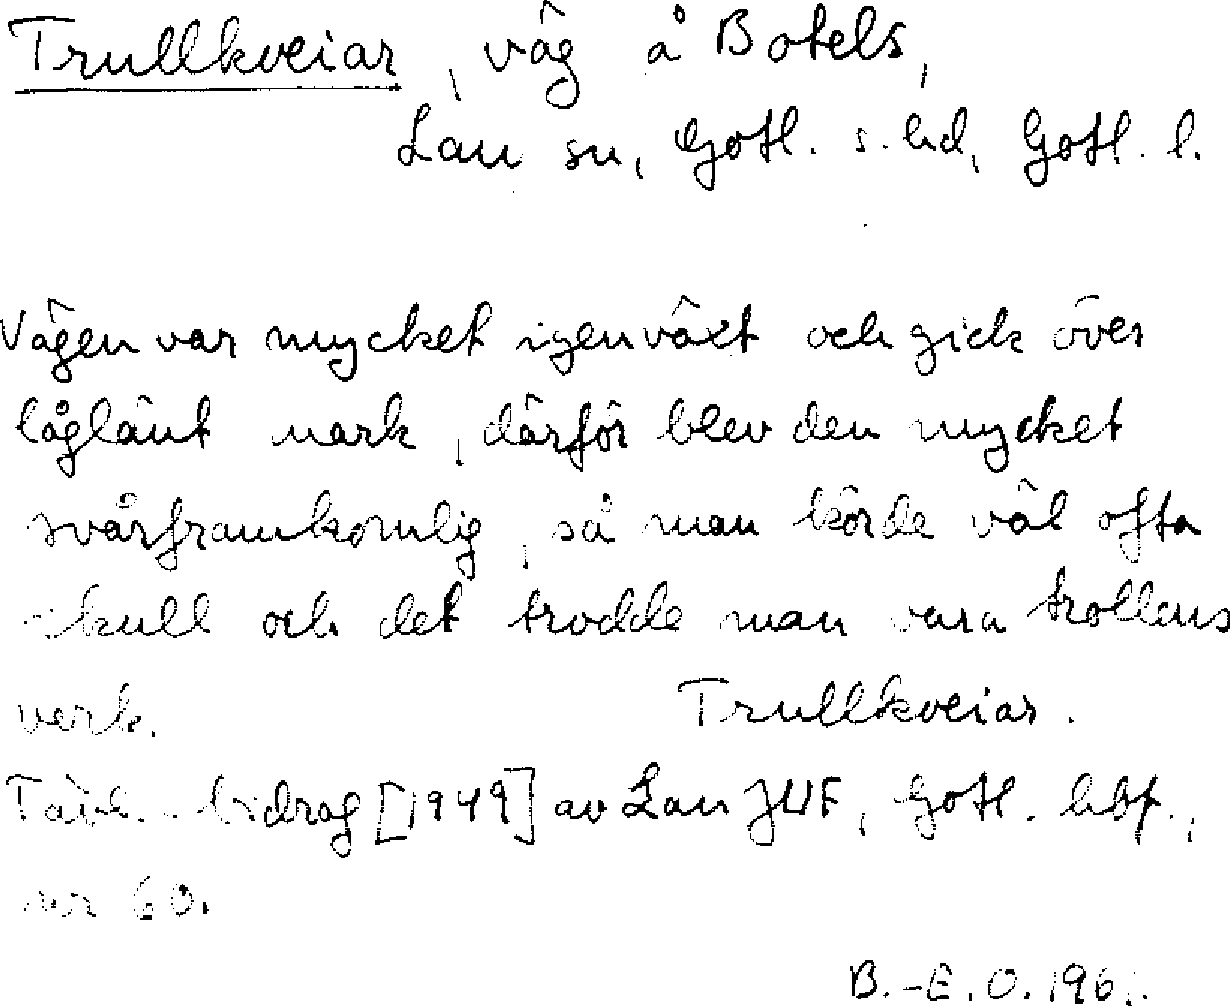 Trullkveiar, väg å Botels,
Lau sn, Gotl. s. hd, Gotl. l.
Vägen var mycket igenväxt och gick över
låglänt mark, därför blev den mycket
svårframkomlig, så man körde väl ofta
kull och det trodde man vara trollens
verk. Trullkveiar.
Tävl.-bidrag [1949] av Lau JUF, Gotl. hbf.,
nr 60.
B.-E. O.